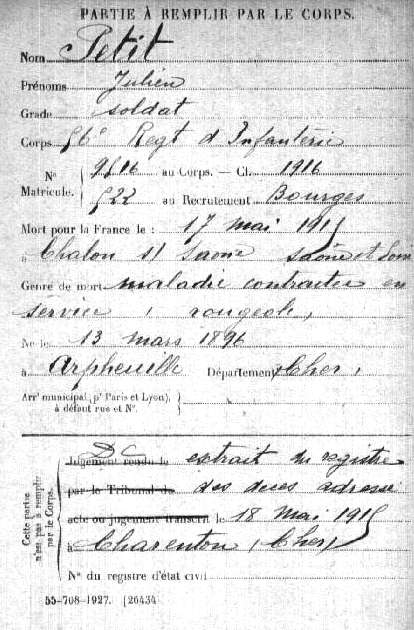 PARTIE À REMPLIR PAR LE CORPS.
Nom Petit
Prénoms Julien
Grade soldat
Corps 56e Regt d'Infanterie
N° Matricule. { 9516 au Corps. — Cl. 1916
522 au Recrutement Bourges
Mort pour la France le 17 mai 1915
à Chalon s/ Saône Saône et
Genre de mort maladie contractée en
service, rougeole,
Né le 13 mars 1896
à Arpheuille Département Cher,
Arrt municipal (pr Paris et Lyon), à défaut rue et N°.
Cette partie n'est pas à remplir par le Corps.
DC
Jugement rendu le extrait du registre
par le Tribunal de des deces adressé
acte ou jugement transcrit le 18 mai 1915
à Charenton (Cher)
N° du registre d'état civil
55-708-1927. [26434